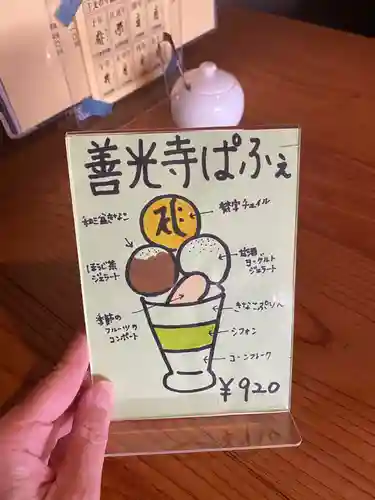 善光寺ぱふぇ
梵字チュイル
和三盆きなこ
ほうじ茶
ジェラート
ヨーグルト
ジェラート
季節の
フルーツの
コンポート
きなこぷりん
シフォン
コーンフレーク
¥920